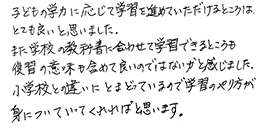 子どもの学力に応じて学習を進めていただけるところは、
とても良いと思いました。
また学校の教科書に合わせて学習できるところも
復習の意味も含めて良いのではないかと感じました。
小学校との違いにとまどっているので学習のやり方が
身についていてくれればと思います。